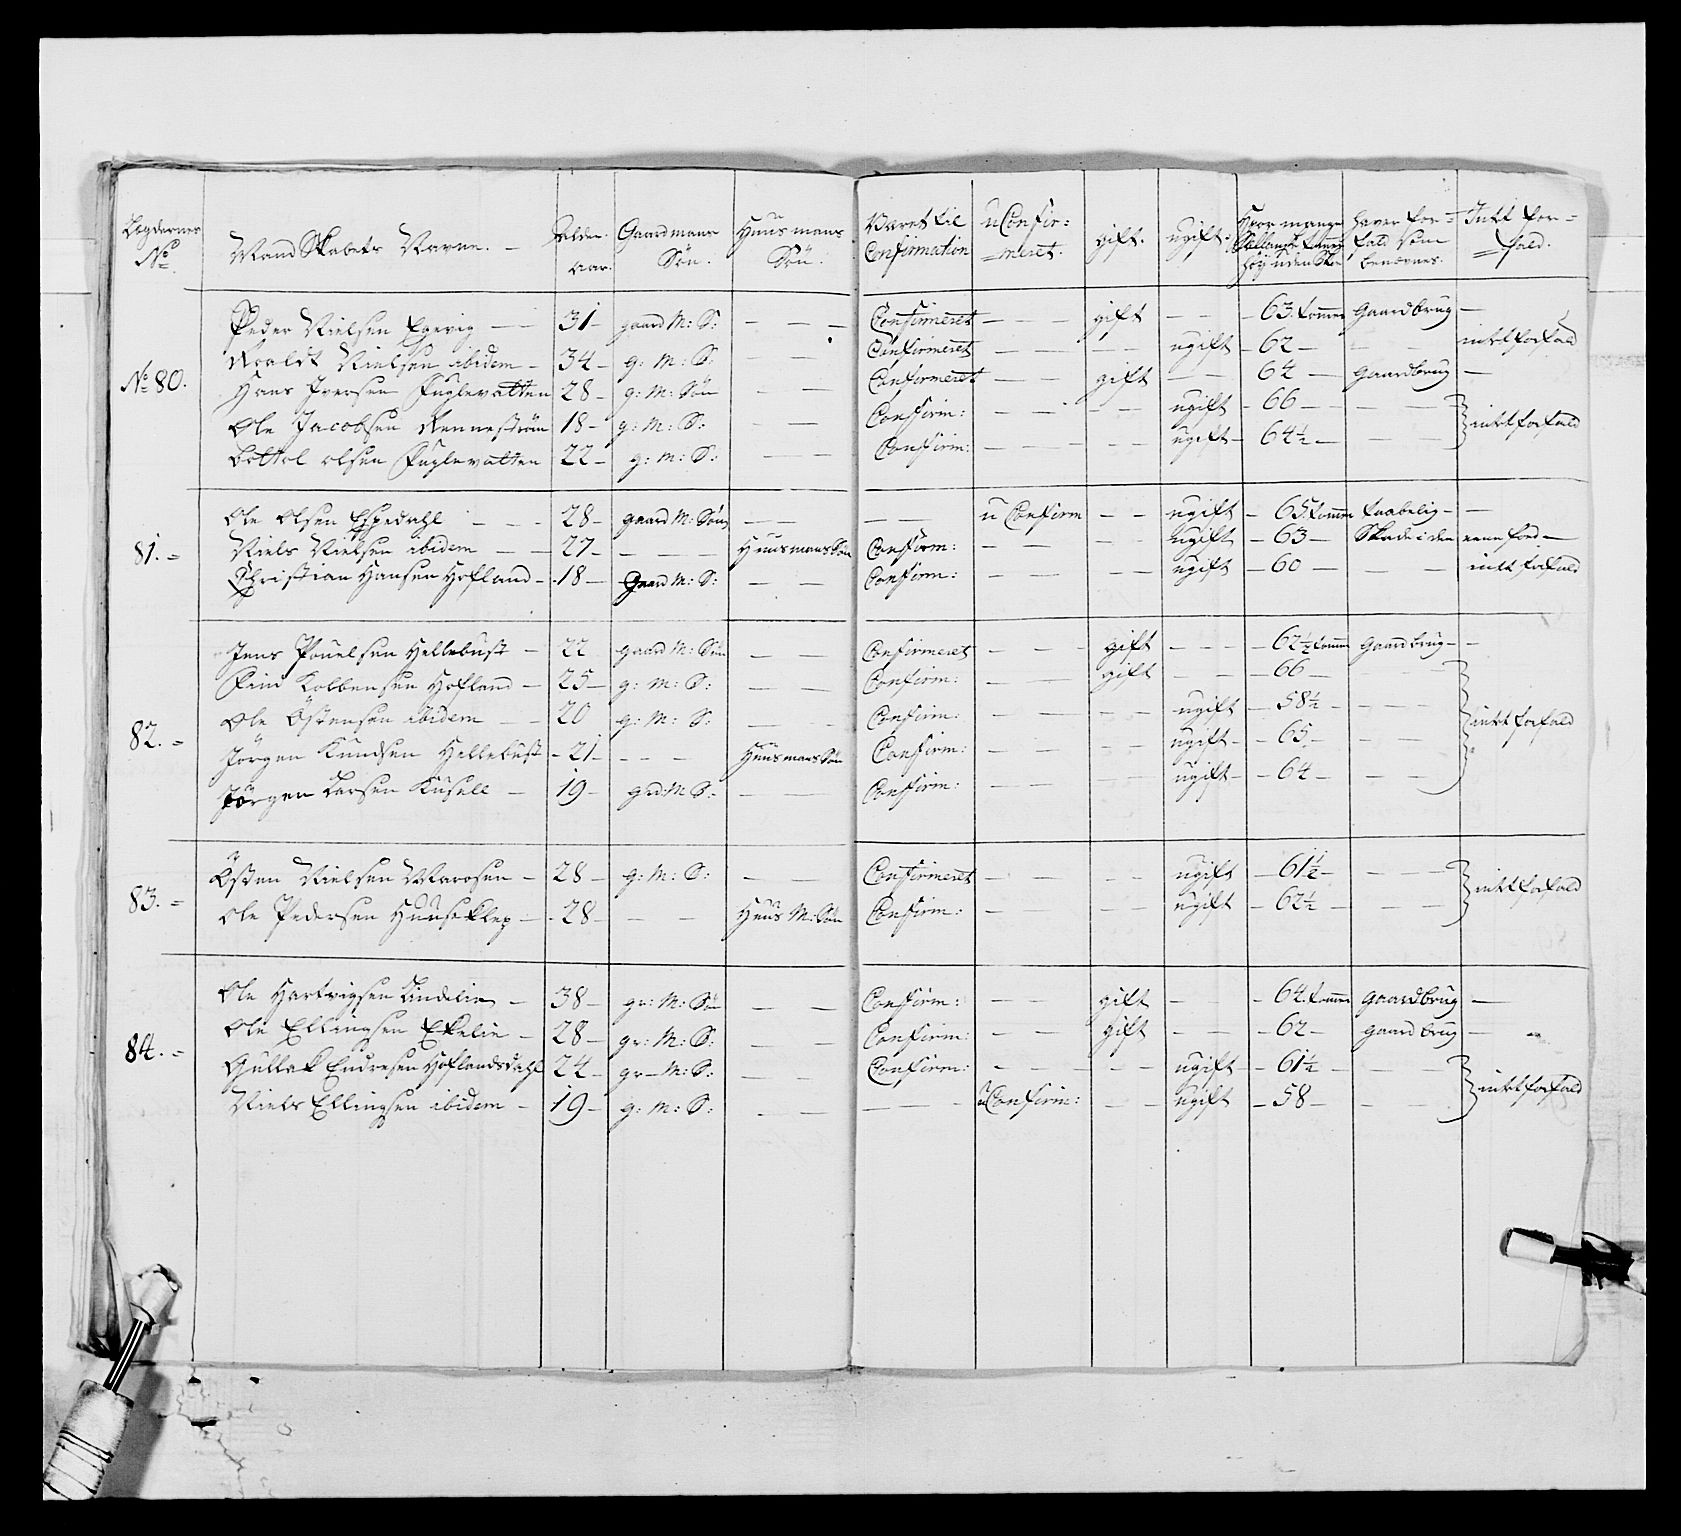 Lægdernes No. | Mand Skabets Navne. | Alder. aar. | Gaardmans Søn. | Huusmans Søn. | Været til Confirmation | uConfir:=meret. | gift. | ugift. | Hvor mange høy uden Skoe | haver for=fald som benævnes. | Intet for=fald.
No. 80. | Peder Nielsen Egevig — | 31 — | gaard M: S: | — — — | Confirmeret | — — | gift | — — | 63. tommer | Gaardbrug | —
Roaldt Nielsen ibidem — | 34 — | g: M: S: | — — | Confirmeret | — — | — — | ugift | — 62 — | — — | intet forfald
Hans Iversen Fuglevatten | 28 — | g: M: Søn | — — | Confirmeret | — — | gift | — — | 62 — | Gaardbrug | —
Ole Jacobsen Rennestrøm | 18 — | g: M: S: | — — | Confirm: | — — | — — | ugift | — 66 — | — — | intet forfald
Bottol olsen Fuglevatten | 22 — | g: M: S: | — — | Confirm: | — — | — — | ugift | — 64½ — | — —
81. = | Ole Olsen Espedahl — — | 28 — | gaard M: Søn | — — | — — | u Confirm | — — | ugift | — 65 tommer | taabelig — | —
Niels Nielsen ibidem — — | 27 — | — — — | Huusmans Søn | Confirm: | — — | — — | ugift | — 63 — | Skade i den | eene food —
Christian Hansen Hofland — | 18 — | Gaard M: S: | — — | Confirm: | — — | — — | ugift | — 60 — | — — | intet forfald
82. = | Jens Pouelsen Hellebust — | 22 | gaard M: Søn | — — | Confirmeret | — — | gift | — — | 62½ tomm | gaardbrug — | —
Kolbensen Hofland — | 25 — | g: M: S: | — — | Confirm: | — — | gift | — — | 66 — | — —
Ole Östensen ibidem — — | 20 | g: M: S: | — — | Confirm: | — — | — — | ugift | — 58½ — | — — | intet forfald
Jörgen Knudsen Hellebust | — 21 — | — — — | Huusmans Søn | Confirm: | — — | — — | ugift — | — 65 — | — —
Jörgen Larsen Kusell — | 19 — | grd: M: S: | — — | Confirm: | — — | — — | ugift — | — 64 — | — —
83. = | Östen Nielsen Marosen — | 28 — | g: M: S: | — — | Confirmeret | — — | — — | ugift | — 61½ — | — — | intet forfald
Ole Pedersen Huuseklep — | — 28 — | — — | Huus M: Søn | Confirm: | — — | — — | ugift | — 62½ — | — —
84. = | Ole Hartvigsen Lindelie — | 38 — | gr: M: Søn | — — | Confirm: | — — | gift | — — | 64. tomm | Gaardbrug | —
Ole Ellingsen Ekelie — | 28 — | gr: M: S: | — — | Confirm: | — — | gift | — — | 62 — | gaardbrug | — —
Gullak Endresen Hoflandsdahl | 24 — | gr — M: S: | — — | Confirm: | — — | — — | ugift | — 61½ | — — | intet forfald
Niels Ellingsen ibidem — | 19 — | g: M: S: | — — | — — | uConfirm: | — — | ugift | — 58 — | —